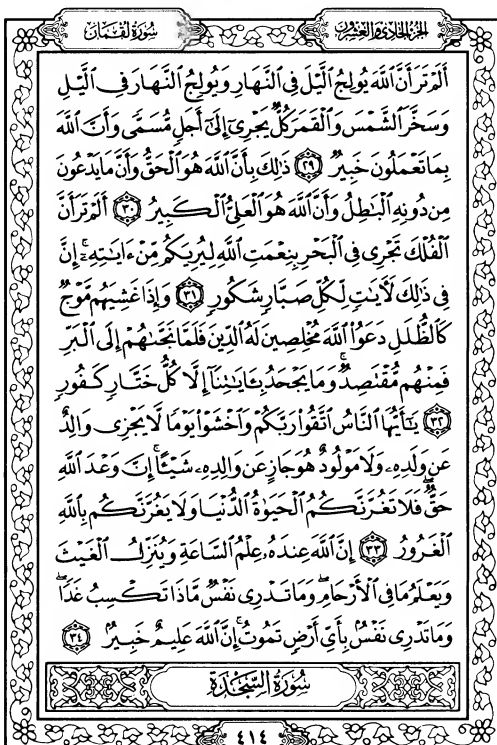 الجزء الحادي والعشرون
سورة لقمان
أَلَمْ تَرَ أَنَّ ٱللَّهَ يُولِجُ ٱلَّيْلَ فِى ٱلنَّهَارِ وَيُولِجُ ٱلنَّهَارَ فِى ٱلَّيْلِ
وَسَخَّرَ ٱلشَّمْسَ وَٱلْقَمَرَ كُلٌّ يَجْرِىٓ إِلَىٰٓ أَجَلٍ مُّسَمًّى وَأَنَّ ٱللَّهَ
بِمَا تَعْمَلُونَ خَبِيرٌ ٢٩ ذَٰلِكَ بِأَنَّ ٱللَّهَ هُوَ ٱلْحَقُّ وَأَنَّ مَا يَدْعُونَ
مِن دُونِهِ ٱلْبَـٰطِلُ وَأَنَّ ٱللَّهَ هُوَ ٱلْعَلِىُّ ٱلْكَبِيرُ ٣٠ أَلَمْ تَرَ أَنَّ
ٱلْفُلْكَ تَجْرِى فِى ٱلْبَحْرِ بِنِعْمَتِ ٱللَّهِ لِيُرِيَكُم مِّنْ ءَايَـٰتِهِۦٓ ۚ إِنَّ
فِى ذَٰلِكَ لَـَٔايَـٰتٍ لِّكُلِّ صَبَّارٍ شَكُورٍ ٣١ وَإِذَا غَشِيَهُم مَّوْجٌ
كَٱلظُّلَلِ دَعَوُا۟ ٱللَّهَ مُخْلِصِينَ لَهُ ٱلدِّينَ فَلَمَّا نَجَّىٰهُمْ إِلَى ٱلْبَرِّ
فَمِنْهُم مُّقْتَصِدٌ ۚ وَمَا يَجْحَدُ بِـَٔايَـٰتِنَآ إِلَّا كُلُّ خَتَّارٍ كَفُورٍ
٣٢ يَـٰٓأَيُّهَا ٱلنَّاسُ ٱتَّقُوا۟ رَبَّكُمْ وَٱخْشَوْا۟ يَوْمًا لَّا يَجْزِى وَالِدٌ
عَن وَلَدِهِۦ وَلَا مَوْلُودٌ هُوَ جَازٍ عَن وَالِدِهِۦ شَيْـًٔا ۚ إِنَّ وَعْدَ ٱللَّهِ
حَقٌّ ۖ فَلَا تَغُرَّنَّكُمُ ٱلْحَيَوٰةُ ٱلدُّنْيَا وَلَا يَغُرَّنَّكُم بِٱللَّهِ
ٱلْغَرُورُ ٣٣ إِنَّ ٱللَّهَ عِندَهُۥ عِلْمُ ٱلسَّاعَةِ وَيُنَزِّلُ ٱلْغَيْثَ
وَيَعْلَمُ مَا فِى ٱلْأَرْحَامِ ۖ وَمَا تَدْرِى نَفْسٌ مَّاذَا تَكْسِبُ غَدًا ۖ
وَمَا تَدْرِى نَفْسٌۢ بِأَىِّ أَرْضٍ تَمُوتُ ۚ إِنَّ ٱللَّهَ عَلِيمٌ خَبِيرٌۢ ٣٤
سورة السجدة
٤١٤